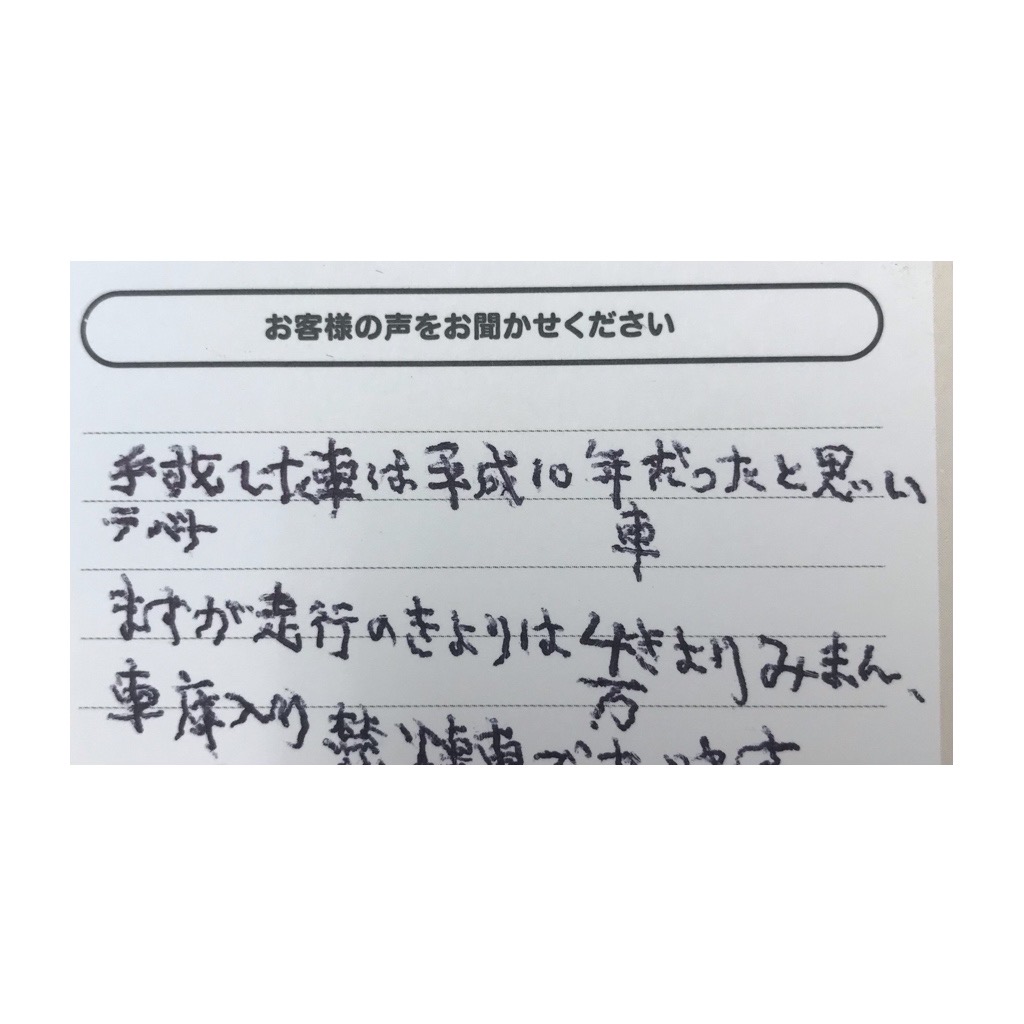 お客様の声をお聞かせください
手放した車は平成10年だったと思い
車
ますが走行のきよりは4きよりみまん、
万
車庫入り禁煙車で